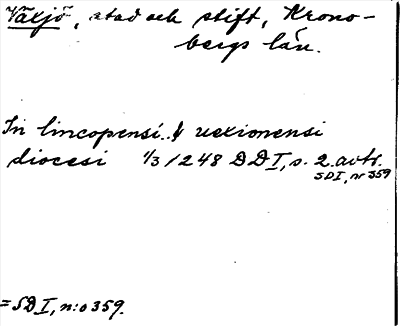 Växjö, stad och stift, Krono-
bergs län.
In lincopensi .. & uexionensi
diocesi 1/3 1248 DD I, s. 2. avtr.
SDI, nr 359
= SD I, n:o 359.